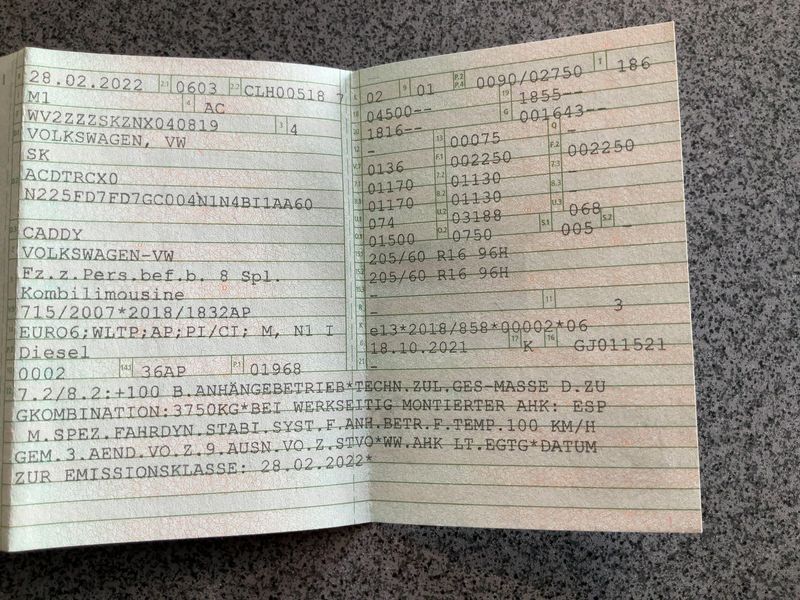 28.02.2022 2.1 0603 2.2 CLH00518 7
M1 4 AC
WV2ZZZSKZNX040819 3 4
VOLKSWAGEN, VW
SK
ACDTRCX0
N225FD7FD7GC004N1N4BI1AA60
CADDY
VOLKSWAGEN-VW
Fz.z.Pers.bef.b. 8 Spl.
Kombilimousine
715/2007*2018/1832AP
EURO6;WLTP;AP;PI/CI; M, N1 I
Diesel
0002 14.1 36AP P.1 01968
L 02 9 01 P.2 P.4 0090/02750 T 186
18 04500-- 19 1855--
20 1816-- G 001643--
12 - 13 00075 Q -
V.7 0136 F.1 002250 F.2 002250
7.1 01170 7.2 01130 7.3 -
8.1 01170 8.2 01130 8.3 -
U.1 074 U.2 03188 U.3 068
O.1 01500 O.2 0750 S.1 005 S.2 -
205/60 R16 96H
205/60 R16 96H
-
R - 11 3
K e13*2018/858*00002*06
6 18.10.2021 17 K 16 GJ011521
21 -
7.2/8.2:+100 B.ANHÄNGEBETRIEB*TECHN.ZUL.GES-MASSE D.ZU
GKOMBINATION:3750KG*BEI WERKSEITIG MONTIERTER AHK: ESP
M.SPEZ.FAHRDYN.STABI.SYST.F.ANH.BETR.F.TEMP.100 KM/H
GEM.3.AEND.VO.Z.9.AUSN.VO.Z.STVO*WW.AHK LT.EGTG*DATUM
ZUR EMISSIONSKLASSE: 28.02.2022*